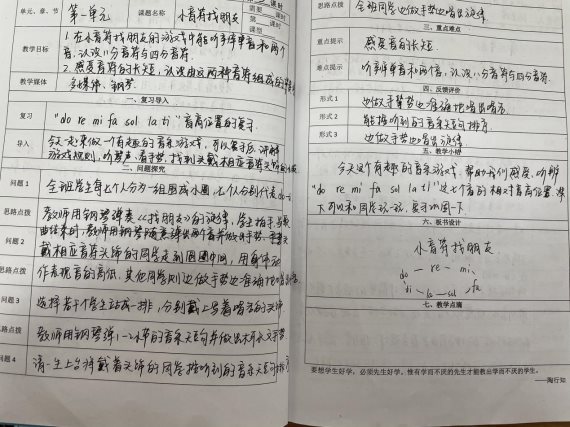 单元、章、节
第一单元
课时
课题名称
小音符找朋友
需要 课时
第 课时
课型
教学目标
1.在小音符找朋友的游戏中能听辨单音和两个
音,认识八分音符与四分音符.
2.感受音符的长短,认识由这两种音符组成的
教学媒体
多媒体、钢琴
一、复习导入
复习
"do re mi fa sol la ti"音高位置的复习.
导入
今天一起来做一个有趣的音乐游戏,
游戏规则,听琴声、看手势,找到头戴相应音符头饰的
二、问题探究
问题 1
全班学生每七个人分为一组围成小圈,七个人分别代表do-
思路点拨
教师用钢琴弹奏《找朋友》的旋律,学生拍手,
问题 2
曲结束时,教师用钢琴随意弹出两个音并做出手势,
戴相应音符头饰的同学走到圆圈中间,用身体动
思路点拨
作表现音的高低.其他同学则边做手势边准确地唱
问题 3
选择若干个学生站成一排,分别戴上写着唱名的头饰
思路点拨
教师用钢琴弹1-2小节的音乐短句并做出柯尔文手势
问题 4
请一生上台将戴着头饰的同学按听到的音乐短句排序
思路点拨
全班同学边做手势边唱出旋律.
三、重点难点
重点提示
感受音的长短.
难点提示
听辨单音和两个音,认识八分音符与四分音符.
四、反馈评价
形式 1
边做手势边准确地唱出唱名.
形式 2
能按听到的音乐短句排序.
形式 3
边做手势边唱出旋律.
五、教学小结
今天这个有趣的音乐游戏,帮助我们感受、听辨
"do re mi fa sol la ti"这七个音的相对音高位置,课
下可以和同学玩一玩,复习巩固一下.
六、板书设计
小音符找朋友
do — re — mi
ti la — sol fa
七、教学点滴
要想学生好学,必须先生好学。惟有学而不厌的先生才能教出学而不厌的学生。
——陶行知